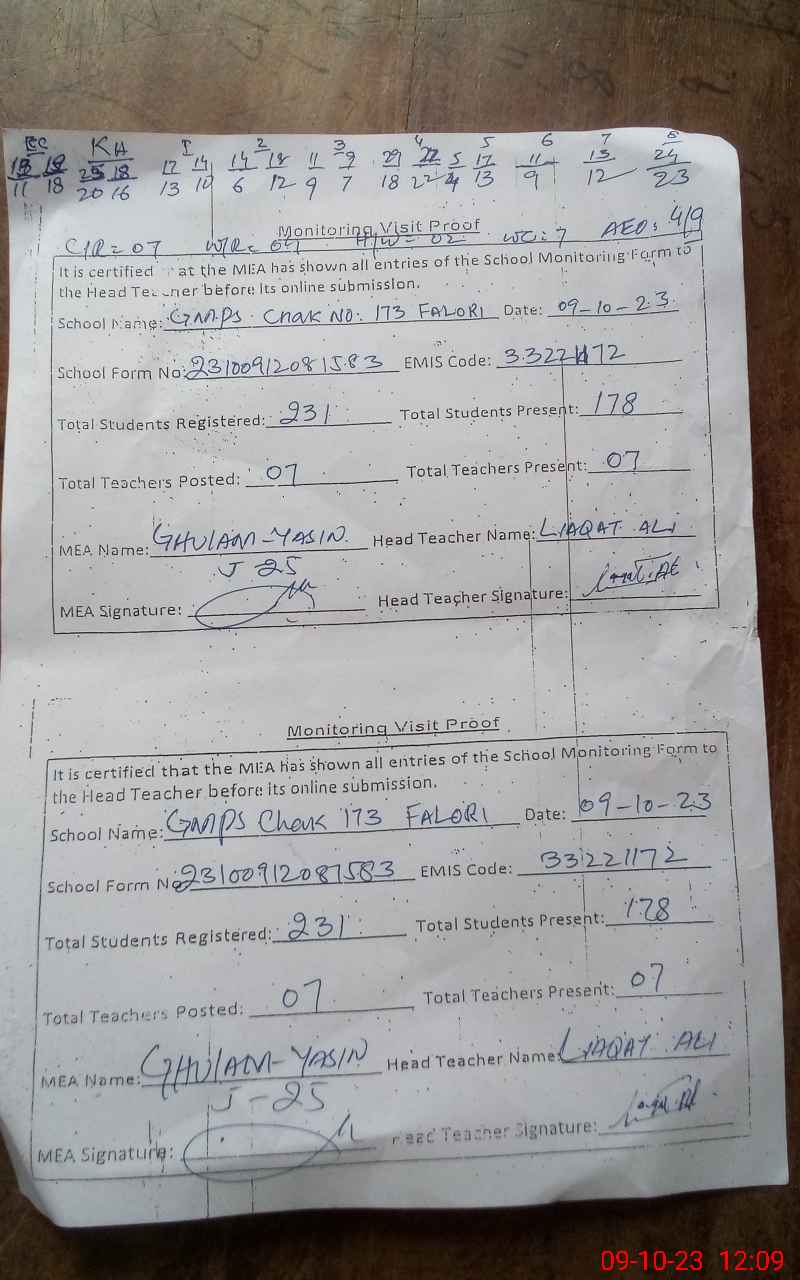 ECE KA I 2 3 4 5 6 7 8
18 25 18 17 14 14 18 11 9 29 22 5 17 11 13 24
11 18 20 16 13 10 6 12 9 7 18 22 4 13 9 12 23
Monitoring Visit Proof
C/R = 07 W/R = H/W = 02 WC: 7 AEO: 4/9
It is certified at the MEA has shown all entries of the School Monitoring Form to
the Head Teacher before its online submission.
School Name: GMPS Chak NO. 173 FALORI Date: 09-10-23
School Form No: 23100912081583 EMIS Code: 33221172
Total Students Registered: 231 Total Students Present: 178
Total Teachers Posted: 07 Total Teachers Present: 07
MEA Name: GHULAM-YASIN Head Teacher Name: LIAQAT ALI
J-25
MEA Signature: Head Teacher Signature:
Monitoring Visit Proof
It is certified that the MEA has shown all entries of the School Monitoring Form to
the Head Teacher before its online submission.
School Name: GMPS Chak 173 FALORI Date: 09-10-23
School Form No 23100912081583 EMIS Code: 33221172
Total Students Registered: 231 Total Students Present: 178
Total Teachers Posted: 07 Total Teachers Present: 07
MEA Name: GHULAM-YASIN Head Teacher Name: LIAQAT ALI
J-25
MEA Signature: Head Teacher Signature:
09-10-23 12:09